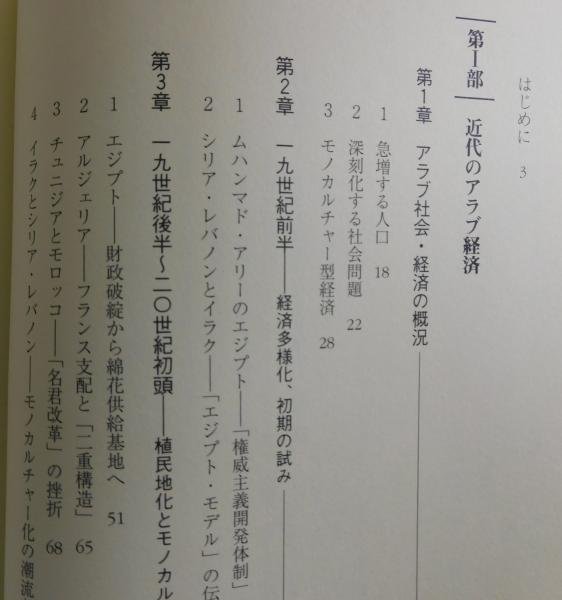 はじめに 3
第Ⅰ部 近代のアラブ経済
第1章 アラブ社会・経済の概況
1 急増する人口 18
2 深刻化する社会問題 22
3 モノカルチャー型経済 28
第2章 一九世紀前半――経済多様化、初期の試み
1 ムハンマド・アリーのエジプト――「権威主義開発体制」
2 シリア・レバノンとイラク――「エジプト・モデル」の伝
第3章 一九世紀後半～二〇世紀初頭――植民地化とモノカル
1 エジプト――財政破綻から綿花供給基地へ 51
2 アルジェリア――フランス支配と「二重構造」 65
3 チュニジアとモロッコ――「名君改革」の挫折 68
4 イラクとシリア・レバノン――モノカルチャー化の潮流